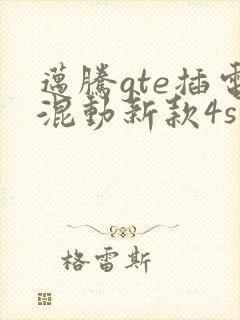 邁騰gte插電
混動新款4s
格雷斯